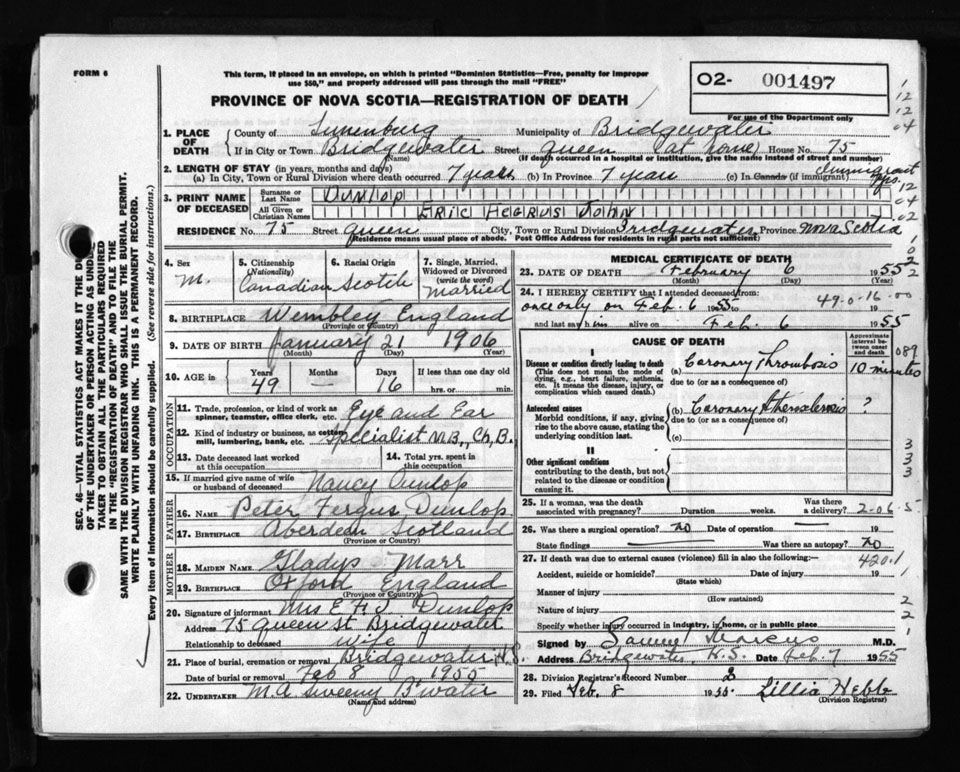 FORM 6
This form, if placed in an envelope, on which is printed "Dominion Statistics—Free, penalty for improper
use $50," and properly addressed will pass through the mail "FREE"
O2- 001497
PROVINCE OF NOVA SCOTIA—REGISTRATION OF DEATH
For use of the Department only
1. PLACE OF DEATH County of Lunenburg Municipality of Bridgewater
If in City or Town Bridgewater Street Queen (at home) House No. 75
(Name) (If death occurred in a hospital or institution, give the name instead of street and number)
2. LENGTH OF STAY (in years, months and days)
(a) In City, Town or Rural Division where death occurred 7 years (b) In Province 7 years (c) In Canada (if immigrant) Immigrant 7 yrs.
3. PRINT NAME OF DECEASED Surname or Last Name Dunlop
All Given or Christian Names Eric Fergus John
RESIDENCE No. 75 Street Queen City, Town or Rural Division Bridgewater Province Nova Scotia
(Residence means usual place of abode. Post Office Address for residents in rural parts not sufficient)
4. Sex M.
5. Citizenship (Nationality) Canadian
6. Racial Origin Scotch
7. Single, Married, Widowed or Divorced (write the word) Married
8. BIRTHPLACE Wembley England
(Province or Country)
9. DATE OF BIRTH January 21 1906
(Month) (Day) (Year)
10. AGE in Years 49 Months — Days 16 If less than one day old
hrs. or min.
OCCUPATION
11. Trade, profession, or kind of work as spinner, teamster, office clerk, etc. Eye and Ear
12. Kind of industry or business, as cotton mill, lumbering, bank, etc. Specialist M.B., Ch.B.
13. Date deceased last worked at this occupation
14. Total yrs. spent in this occupation
15. If married give name of wife or husband of deceased Nancy Dunlop
FATHER
16. NAME Peter Fergus Dunlop
17. BIRTHPLACE Aberdeen Scotland
(Province or Country)
MOTHER
18. MAIDEN NAME Gladys Marr
19. BIRTHPLACE Oxford England
(Province or Country)
20. Signature of informant Mrs E. F. J. Dunlop
Address 75 Queen St Bridgewater
Relationship to deceased wife
21. Place of burial, cremation or removal Bridgewater N.S.
Date of burial or removal Feb 8 1955
22. UNDERTAKER M.A. Sweeny B'water
(Name and address)
MEDICAL CERTIFICATE OF DEATH
23. DATE OF DEATH February 6 1955
(Month) (Day) (Year)
24. I HEREBY CERTIFY that I attended deceased from:
once only on Feb. 6 1955 to 19
49-0-16-00
and last saw him alive on Feb. 6 1955
CAUSE OF DEATH
Approximate interval between onset and death
089
I
Disease or condition directly leading to death
(This does not mean the mode of dying, e.g., heart failure, asthenia, etc. It means the disease, injury, or complication which caused death.)
(a) Coronary Thrombosis 10 minutes
due to (or as a consequence of)
Antecedent causes
Morbid conditions, if any, giving rise to the above cause, stating the underlying condition last.
(b) Coronary Atherosclerosis ?
due to (or as a consequence of)
(c)
II
Other significant conditions
contributing to the death, but not related to the disease or condition causing it.
25. If a woman, was the death associated with pregnancy? Duration weeks. Was there a delivery?
2-06-5
26. Was there a surgical operation? no Date of operation — 19
State findings — Was there an autopsy? no
27. If death was due to external causes (violence) fill in also the following:—
420.1
Accident, suicide or homicide? Date of injury 19
(State which)
Manner of injury
(How sustained)
Nature of injury
Specify whether injury occurred in industry, in home, or in public place
Signed by Samuel Marcus M.D.
Address Bridgewater, N.S. Date Feb. 7 1955
28. Division Registrar's Record Number
29. Filed Feb. 8 1955. Lillia Hebb
(Division Registrar)
SEC. 46—VITAL STATISTICS ACT MAKES IT THE
OF THE UNDERTAKER OR PERSON ACTING AS
TAKER TO OBTAIN ALL THE PARTICULARS REQUIRED
IN THE "REGISTRATION OF DEATH" AND TO FILE THE
SAME WITH THE DIVISION REGISTRAR WHO SHALL ISSUE THE BURIAL PERMIT.
WRITE PLAINLY WITH UNFADING INK. THIS IS A PERMANENT RECORD.
Every item of information should be carefully supplied. (See reverse side for instructions.)
1
12
12
04
12
04
02
3
3
3
2
2
1